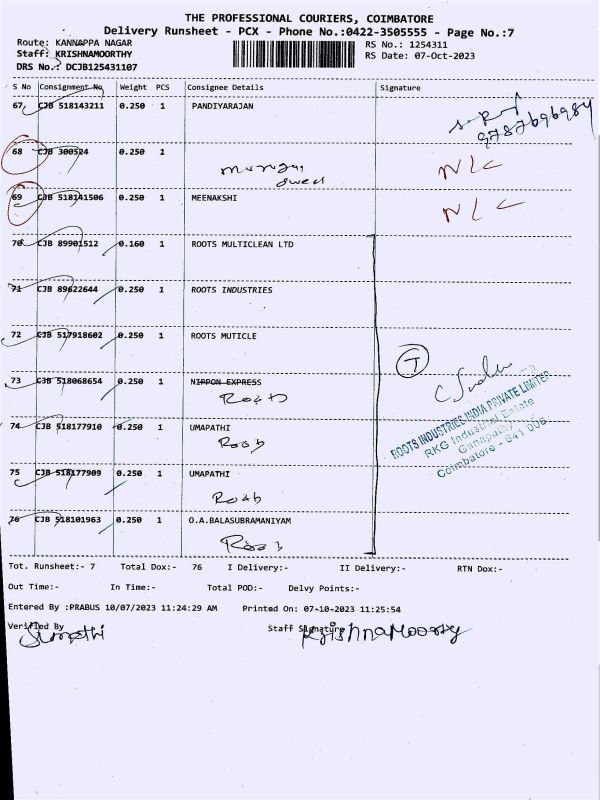 THE PROFESSIONAL COURIERS, COIMBATORE
Delivery Runsheet - PCX - Phone No.:0422-3505555 - Page No.:7
Route: KANNAPPA NAGAR RS No.: 1254311
Staff: KRISHNAMOORTHY RS Date: 07-Oct-2023
DRS No.: DCJB125431107
S No Consignment No Weight PCS Consignee Details Signature
67 CJB 518143211 0.250 1 PANDIYARAJAN
68 CJB 300524 0.250 1
N/C
69 CJB 518141506 0.250 1 MEENAKSHI
N/C
70 CJB 89901512 0.160 1 ROOTS MULTICLEAN LTD
71 CJB 89622644 0.250 1 ROOTS INDUSTRIES
72 CJB 517918602 0.250 1 ROOTS MUTICLE
73 CJB 518068654 0.250 1 NIPPON EXPRESS
74 CJB 518177910 0.250 1 UMAPATHI
75 CJB 518177909 0.250 1 UMAPATHI
76 CJB 518101963 0.250 1 O.A.BALASUBRAMANIYAM
ROOTS INDUSTRIES INDIA PRIVATE LIMITED
RKG Industrial Estate
Ganapathy
Coimbatore - 641 006.
Tot. Runsheet:- 7 Total Dox:- 76 I Delivery:- II Delivery:- RTN Dox:-
Out Time:- In Time:- Total POD:- Delvy Points:-
Entered By :PRABUS 10/07/2023 11:24:29 AM Printed On: 07-10-2023 11:25:54
Verified By Staff Signature
Sumathi KrishnaMoorthy